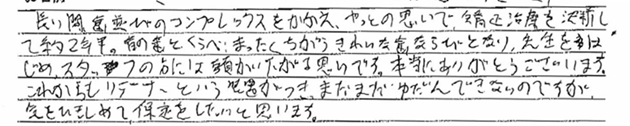 長い間歯並びのコンプレックスをかかえ、やっとの思いで、矯正治療を決断し
て約2年半。前の歯とくらべ、まったくちがうきれいな歯ならびとなり、先生をは
じめ、スタッフの方には頭がさがる思いです。本当にありがとうございます。
これからもリテーナーという装置がつき、まだまだゆだんできないのですが、
気をひきしめて保定をしたいと思います。